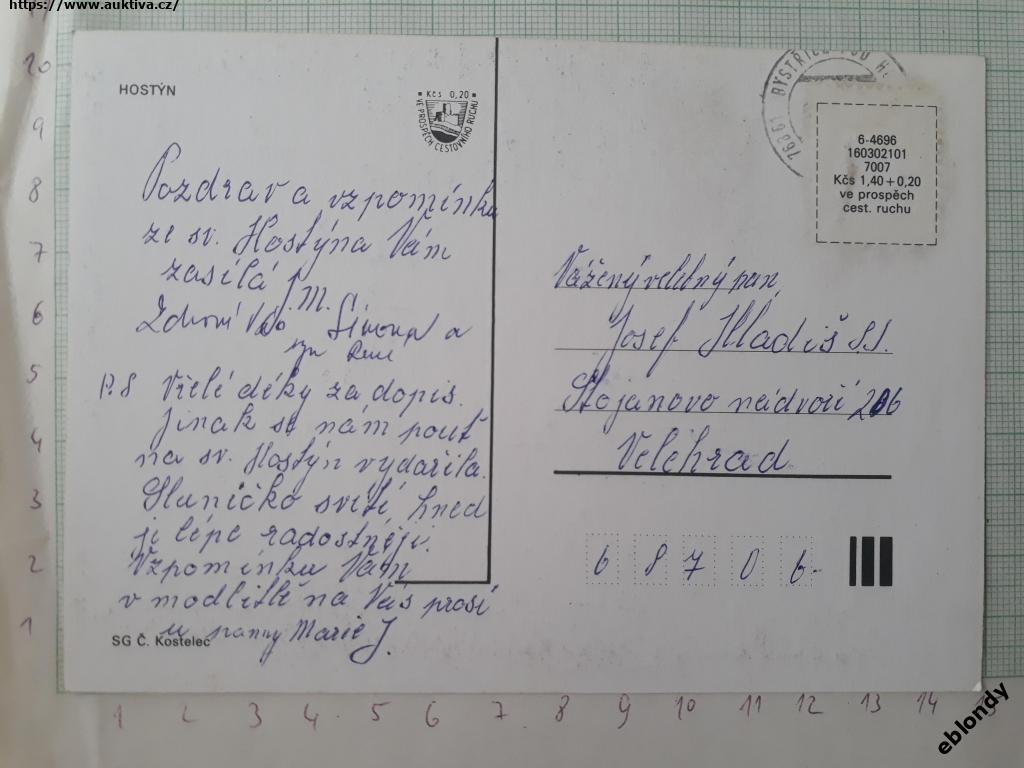 https://www.auktiva.cz/
HOSTÝN
• Kčs 0,20 •
VE PROSPĚCH CESTOVNÍHO RUCHU
Pozdrav a vzpomínku
ze sv. Hostýna Vám
zasílá J. M.
Zdraví Vás a
P.S Vřelé díky za dopis.
Jinak se nám pouť
na sv. Hostýn vydařila.
Sluníčko svítí hned
je lépe radostněji.
Vzpomínku Vám
v modlitbě na Vás prosí
u panny Marie J.
SG Č. Kostelec
76861 BYSTŘICE POD
6-4696
160302101
7007
Kčs 1,40 + 0,20
ve prospěch
cest. ruchu
Vážený velebný pan
Josef Hladiš S.J.
Stojanovo nádvoří 206
Velehrad
6 8 7 0 6
10
9
8
7
6
5
4
3
2
1
1 2 3 4 5 6 7 8 9 10 11 12 13 14
eblondy